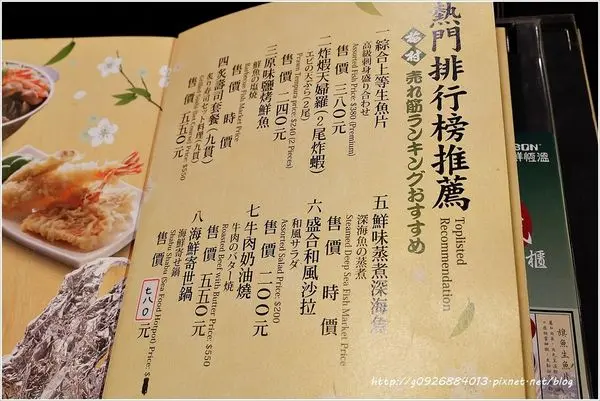 熱門排行榜推薦
梅村 売れ筋ランキングおすすめ
Toplisted
Recommendation
一綜合上等生魚片
高級刺身盛り合わせ
Assorted Fish Price: $380 (Premium)
售價 三八〇元
二炸蝦天婦羅(2尾炸蝦)
エビの天ぷら(2尾)
Prawn Tempura price: $240 (2 Pieces)
售價 二四〇元
三原味鹽烤鮮魚
鮮魚の塩焼
Barbecue Fish Market Price
售價 時價
四炙壽司套餐(九貫)
炙り寿司セット料理(九貫)
售價 五五〇元
五鮮味蒸煮深海魚
深海魚の蒸煮
Steamed Deep Sea Fish Market Price
售價 時價
六盛合和風沙拉
和風サラダ
Assorted Salad Price: $200
售價 二〇〇元
七牛肉奶油燒
牛肉のバター焼
Roasted Beef with Butter Price: $550
售價 五五〇元
八海鮮寄世鍋
海鮮寄せ鍋
Shabu Shabu (Sea Food Hotpot) Price: $
售價 七八〇元
BON
鮮恆溫
櫃
旗魚生魚
http://g0926884013.pixnet.net/blog